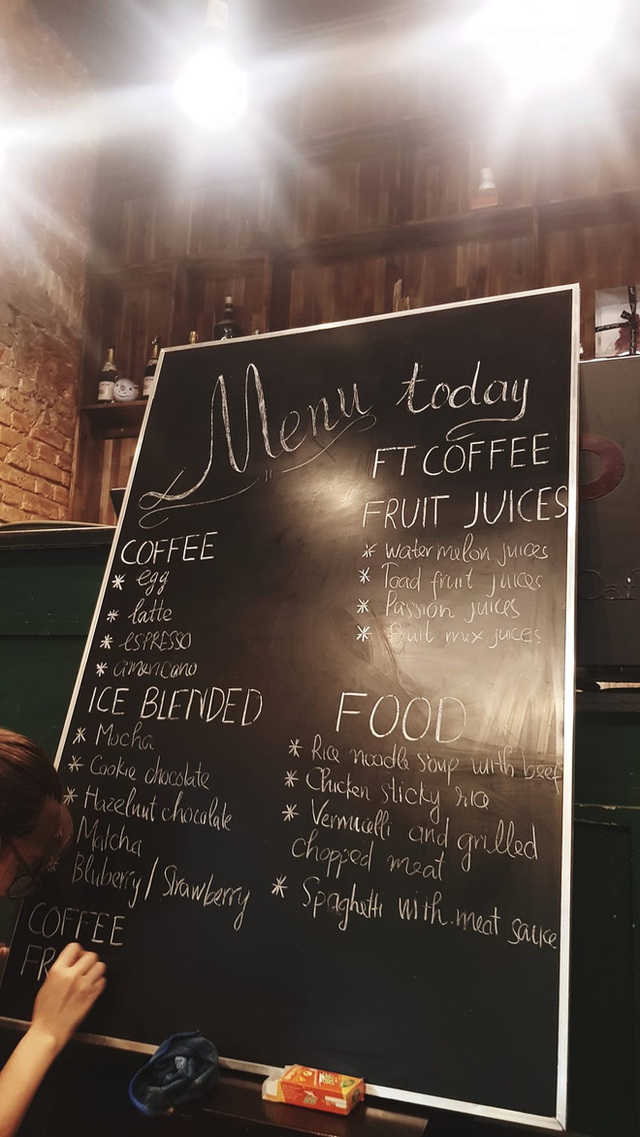 Menu today
FT COFFEE
FRUIT JUICES
* Watermelon juices
* Toad fruit juices
* Passion juices
* Fruit mix juices
COFFEE
* egg
* latte
* ESPRESSO
* americano
ICE BLENDED
* Mocha
* Cookie chocolate
* Hazelnut chocolate
Matcha
Bluberry / Strawberry
COFFEE
FR
FOOD
* Rice noodle soup with beef
* Chicken sticky rice
* Vermicelli and grilled
chopped meat
* Spaghetti with meat sauce